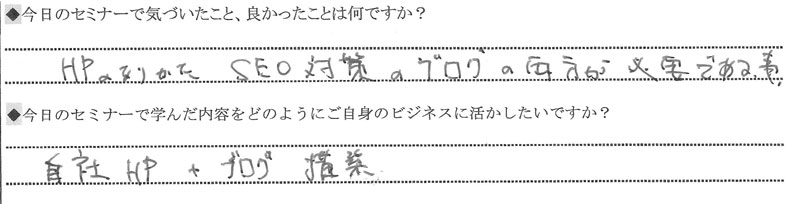 ◆今日のセミナーで気づいたこと、良かったことは何ですか？
HPのありかた SEO対策のブログの両方が必要である事。
◆今日のセミナーで学んだ内容をどのようにご自身のビジネスに活かしたいですか？
自社HP + ブログ 構築